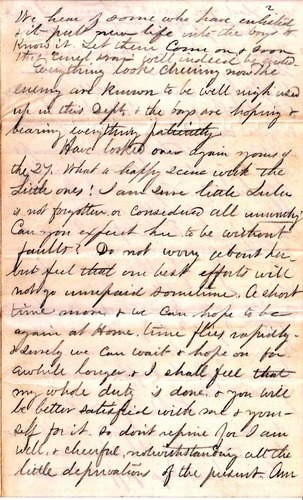 We hear of some who have enlisted
& it put new life into the boys to
know it. Let them come on & soon
that will indeed be
Everything looks cheering now the
enemy are known to be well nigh used
up in this Dept. & the boys are hoping &
bearing everything patiently
Have looked over again yours of
the 27. What a happy scene with the
little ones! I am sure little Lulu
is not forgotten, or considered all unworthy!
Can you expect her to be without
faults? Do not worry about her
but feel that our best efforts will
not go unrepaid sometime. A short
time more & we can hope to be
again at Home. time flies rapidly
& surely we can wait & hope on for
awhile longer & I shall feel that
my whole duty is done, & you will
be better satisfied with me & your-
self for it. so dont repine for I am
well, & cheerful, notwithstanding all the
little deprivations of the present. Am